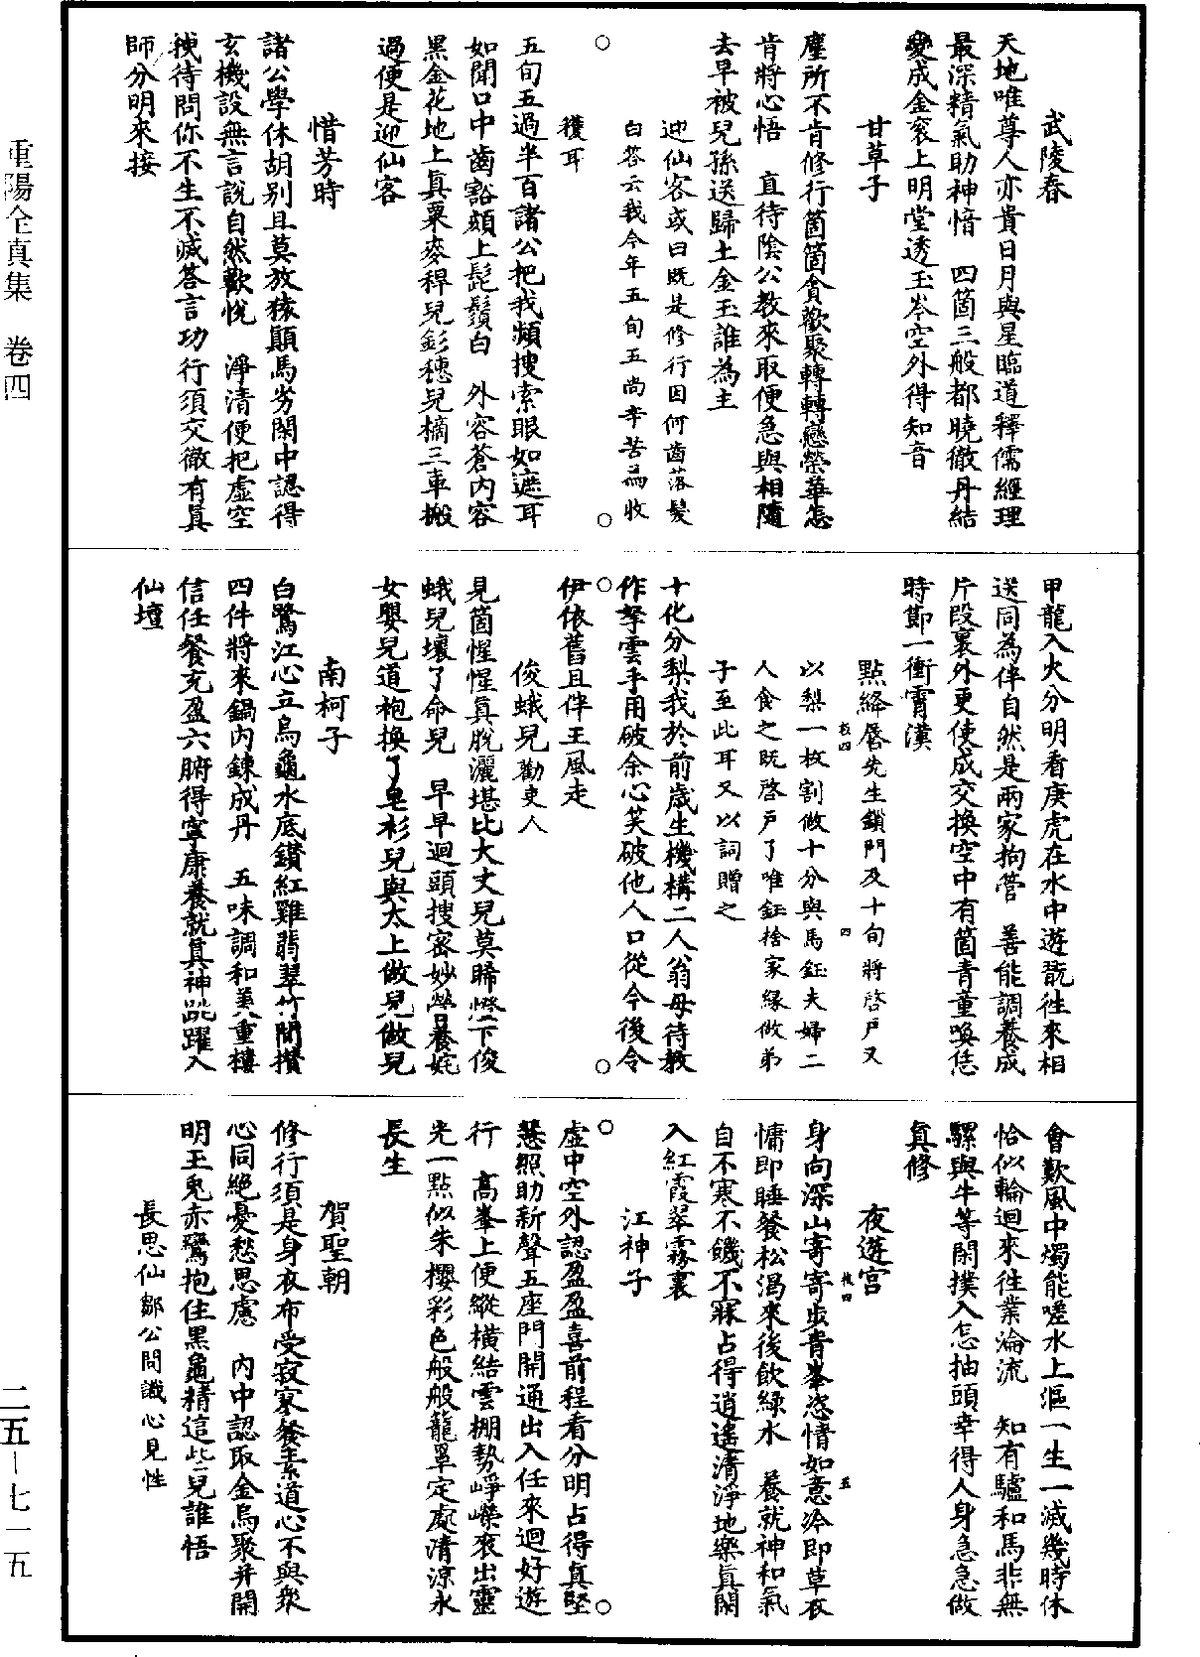 武陵春
天地唯尊人亦貴日月與星臨道釋儒經理
最深精氣助神愔　四箇三般都曉徹丹結
變成金衮上明堂透玉岑空外得知音
甘草子
塵所不肯修行箇箇貪歡聚轉轉戀榮華怎
肯將心悟　直待陰公教來取便急與相隨
去早被兒孫送歸土金玉誰為主
迎仙客或曰既是修行因何齒落髮
白答云我今年五旬五尚辛苦為收
穫耳
五旬五過半百諸公把我頻搜索眼如遮耳
如聞口中齒豁頰上髭鬚白　外容蒼內容
黑金花地上真粟麥稈兒釤穗兒樀三車搬
過便是迎仙客
惜芳時
諸公學休胡别且莫放猿顛馬劣閑中認得
玄機設無言說自然歡悅　淨清便把虛空
拽待問你不生不滅荅言功行須交徹有眞
師分明來接
甲龍入火分明看庚虎在水中遊翫徃來相
送同為伴自然是兩家拘管　善能調養成
片段裏外更使成交換空中有箇青童喚恁
時節一衝霄漢
點絳唇先生鎖門及十旬將啓戶又
以梨一枚割做十分與馬鈺夫婦二
人食之既啓戶了唯鈺捨家緣做弟
子至此耳又以詞贈之
十化分梨我於前歲生機構二人翁母待教
作拏雲手用破余心笑破他人口從今後令
伊依舊且伴王風走
俊蛾兒勸吏人
見箇惺惺眞脫灑堪比大丈兒莫睎燈下俊
蛾兒壞了命兒　早早迴頭搜密妙營養姹
女嬰兒道袍換了皂衫兒與太上做兒做兒
南柯子
白鷺江心立烏龜水底鑽紅雞翡翠竹間攢
四件將來鍋內鍊成丹　五味調和美重樓
信任餐充盈六腑得寧康養就眞神跳躍入
仙壇
會歎風中燭能嗟水上漚一生一滅幾時休
恰似輪迴來徃業淪流　知有驢和馬非無
騾與牛等閑撲入怎抽頭幸得人身急急做
眞修
夜遊宮
身向深山寄寄步青峯恣情如意冷即草衣
慵即睡餐松渴來後飲綠水　養就神和氣
自不寒不饑不寐占得逍遙清淨地樂眞閑
入紅霞翠霧裏
江神子
虛中空外認盈盈喜前程看分明占得眞堅
慧照助新聲五座門開通出入任來迴好遊
行　高峯上便縱橫結雲棚勢崢嶸衮出靈
光一點似朱櫻彩色般般籠罩定處清涼永
長生
賀聖朝
修行須是身衣布受寂寥餐素道心不與衆
心同絶憂愁思慮　內中認取金烏聚并開
明玉兎赤鷺抱住黑龜精這些兒誰悟
長思仙鄒公問識心見性
重陽全真集　卷四
二五－七一五